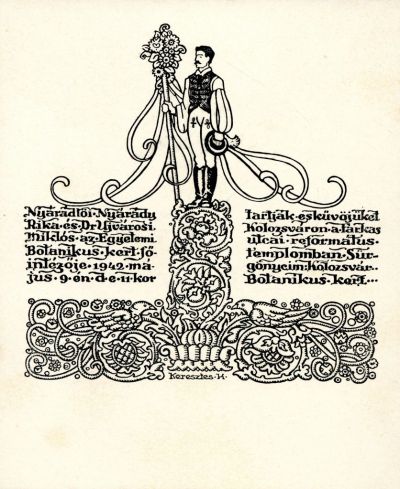 Nyárádtői Nyárády
Rika és Dr Újvárosi
Miklós az Egyetemi
Botanikus kert fő-
intézője 1942 má-
jus 9 én d e 11 kor
tartják esküvőjüket
Kolozsváron a farkas
utcai református
templomban Sür-
gönycím Kolozsvár
Botanikus kert...
Keresztes H.